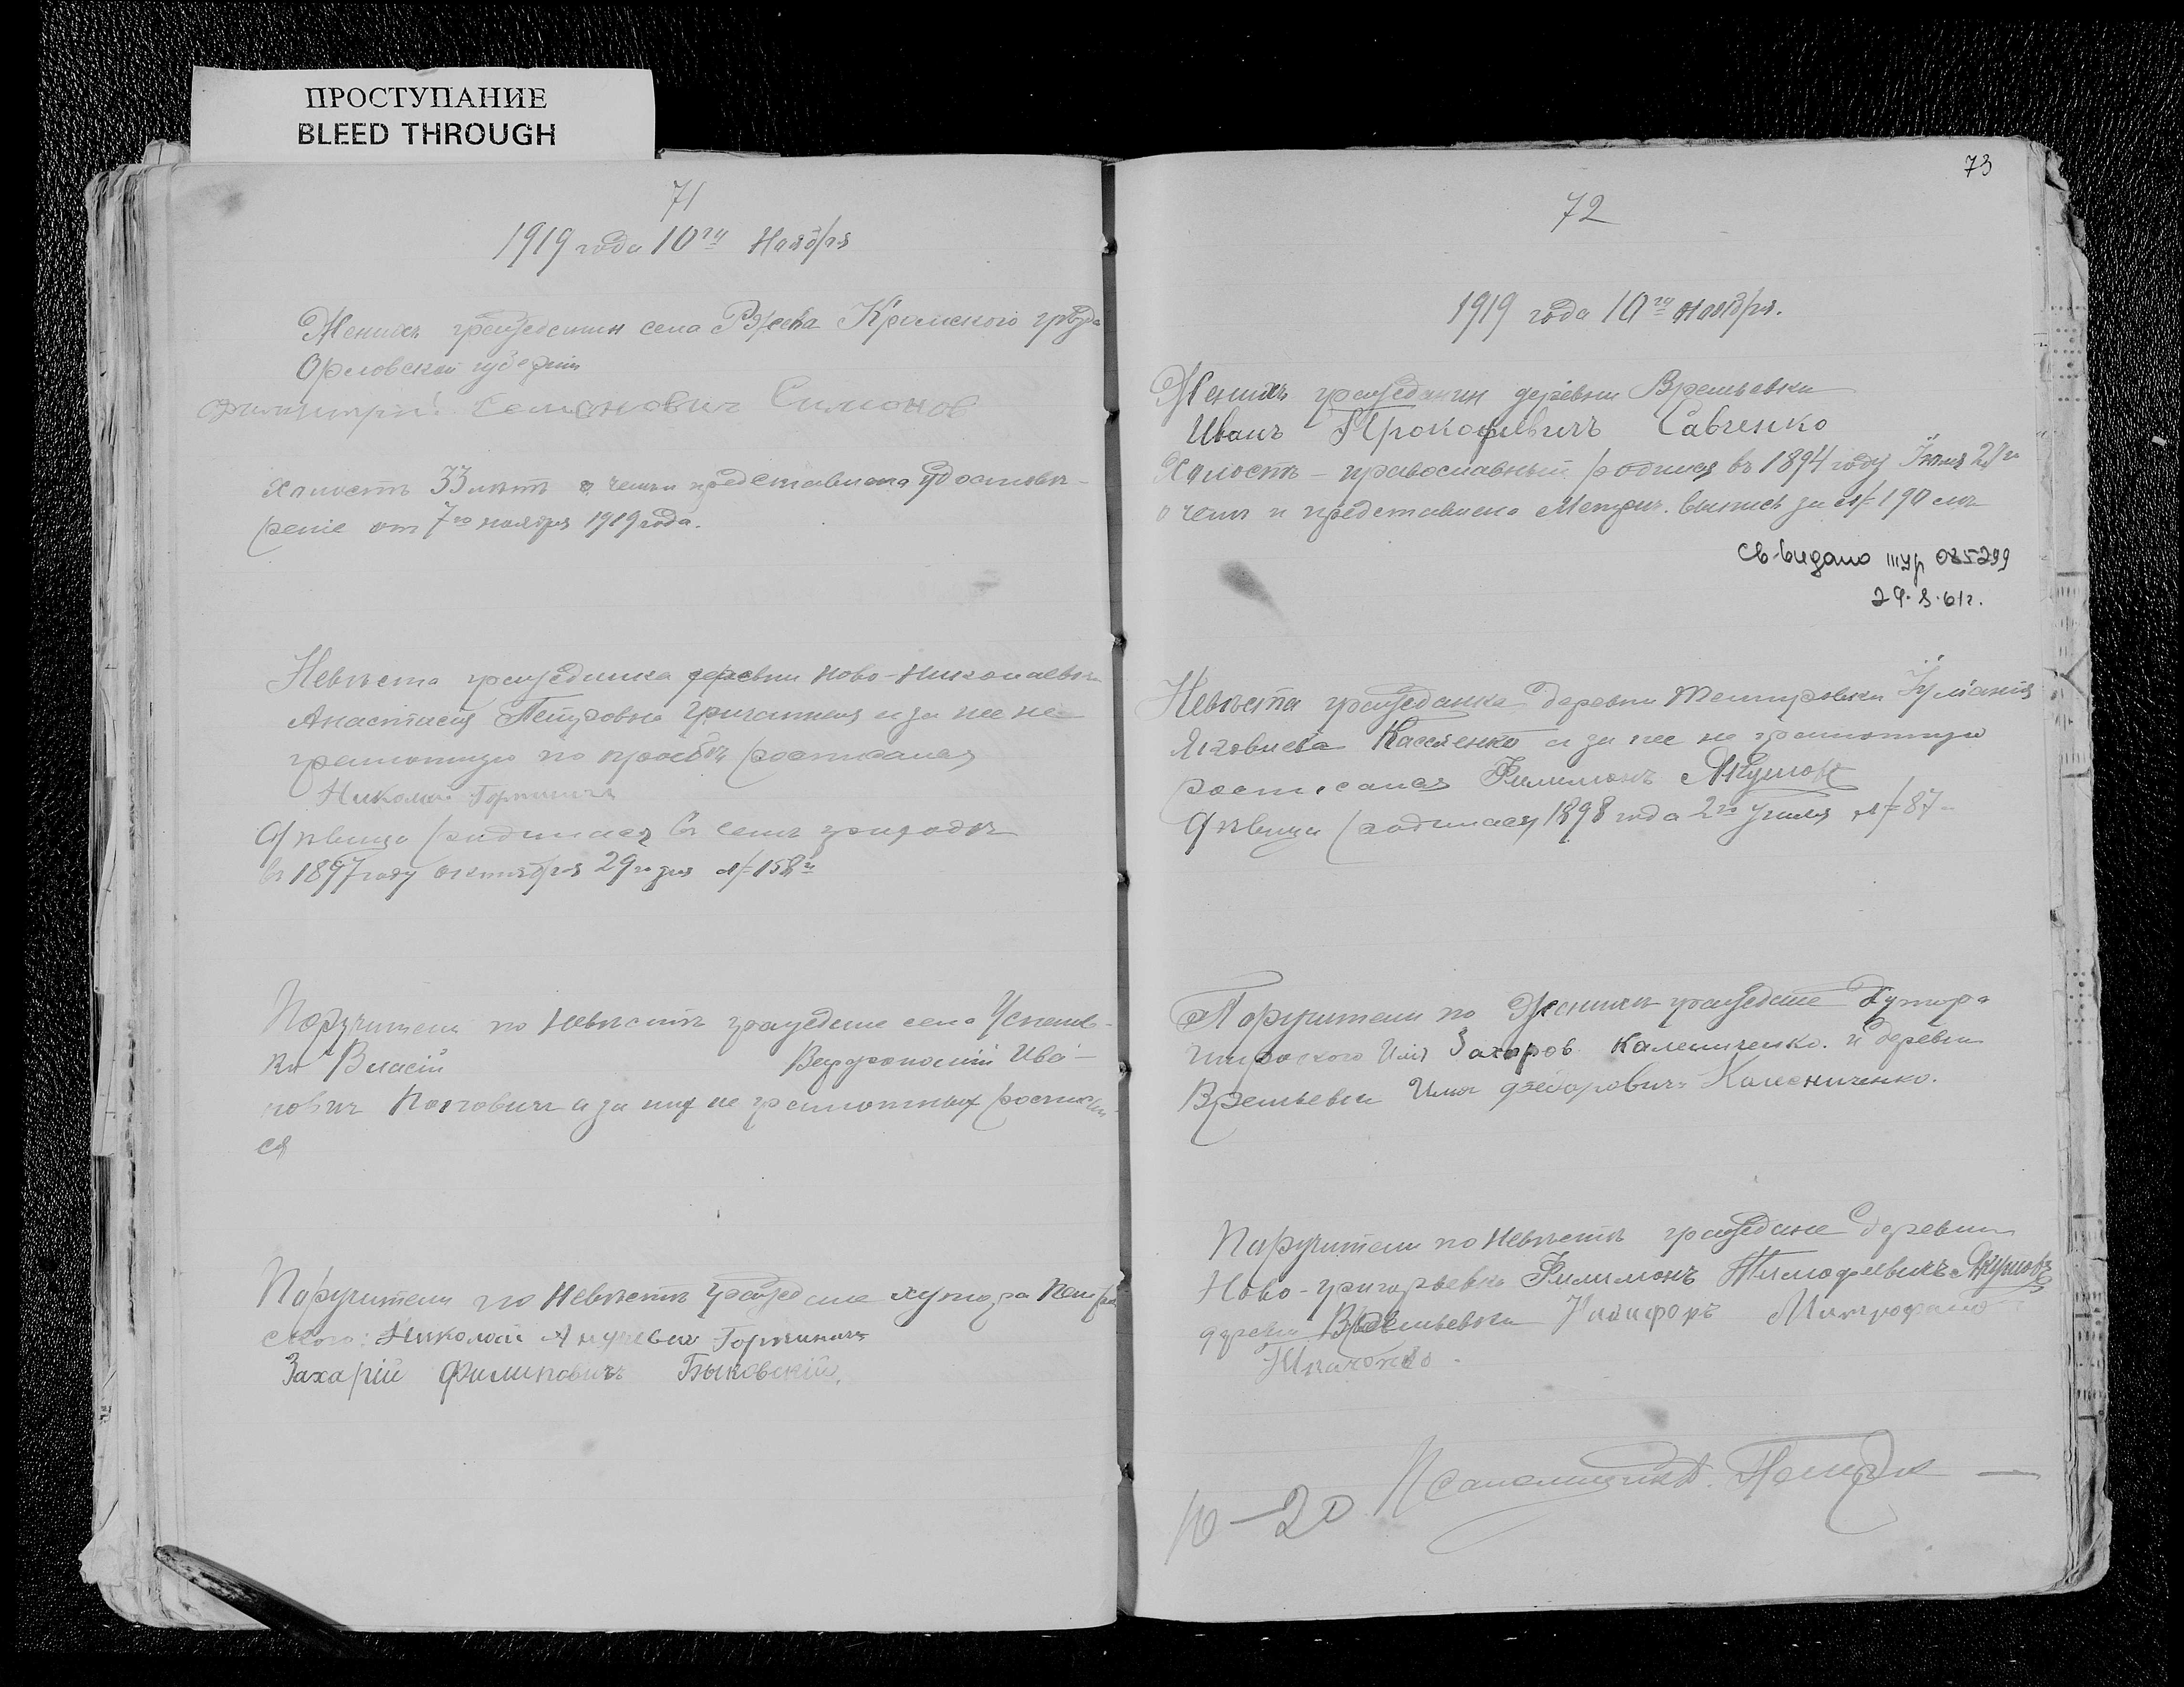 ПРОСТУПАНИЕ
BLEED THROUGH
71
1919 года 10го Ноября
Жених гражданин села Ржева Кромского
Орловской губернии
Семенович Симонов
холостъ 33 летъ о чемъ представлено удостове-
рение от 7го ноября 1919 года.
Невеста гражданка деревни Ново-Николаевки
Анастасия Петровна а за нее не-
грамотную по просьбе росписался
Николай Горпинич
Девица родилась в сем приходе
въ 1897 году октября 29го дня № 158й
Поручители по Невесте граждане села Успенов-
ки Власий Варфоломий Ива-
нович а за них не грамотных росписал-
ся
Поручители по Невесте граждане хутора
Николай Андреевич Горпиничъ
Захарій Филиповичъ Быковский.
73
72
1919 года 10го ноября.
Женихъ гражданин деревни Времьевки
Иванъ Прокофьевичъ Савченко
Холостъ - православный родился въ 1894 году
о чем и представлена Метрич. выпись за № 190 емъ
Св-видано шур 085299
29.8.61г.
Невеста гражданка деревни Темировки Гуліанія
Яковлева Касяенко а за нее не грамотную
росписался Филимонъ Якушов
Девица родилась 1898 года 2го № 87
Поручители по Жениху граждане Хутора
Широкого Илія Захаров Калениченко. и деревни
Времьевки Илья Федорович Калениченко.
Поручители по Невесте граждане деревни
Ново-григорьевки Филимонъ Тимофеевичъ Якушовъ
деревни Времьевки Никифоръ Митрофано
Ткаченко.
10-20 Псаломщикъ